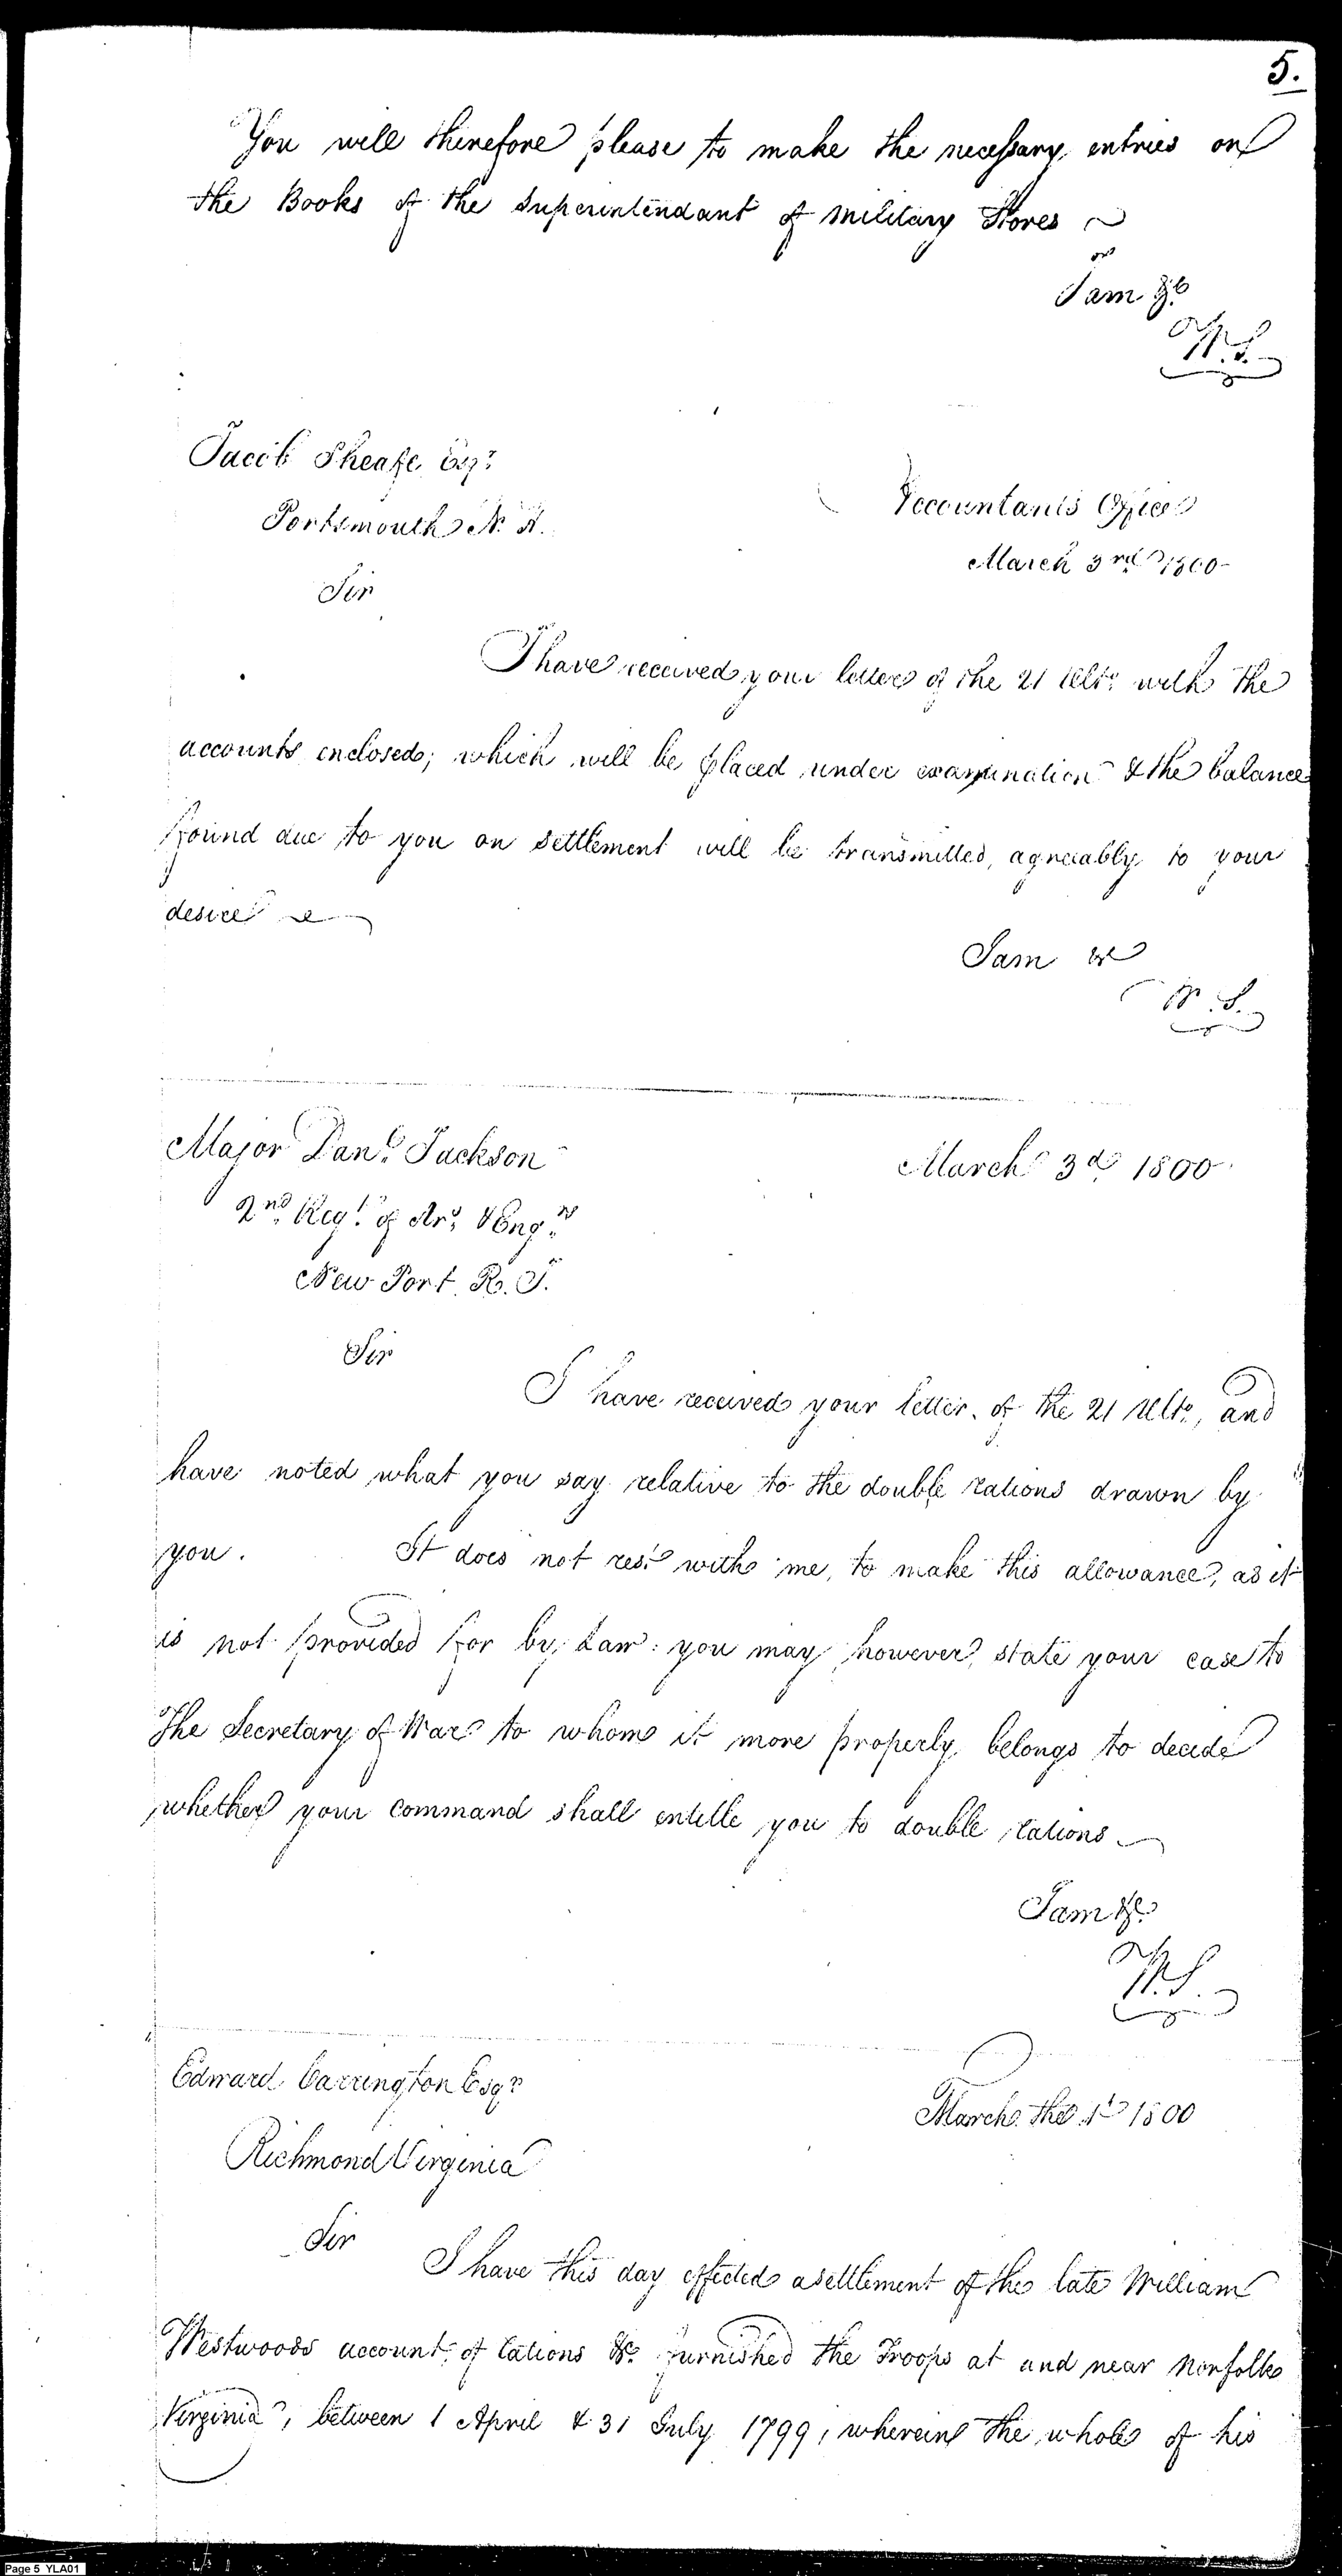 5.
You will therefore please to make the necessary entries on
the Books of the Superintendant of Military Stores
I am &c
W. S.
Jacob Sheafe Esqr
Portsmouth N. H.
Accountants Office
March 3rd 1800
Sir
I have received your letter of the 21 Ulto. with the
accounts enclosed; which will be placed under examination & the balance
found due to you on settlement will be transmitted, agreeably to your
desire
I am &c
W. S.
Major Danl. Jackson
March 3d 1800
2nd Regt. of Ary. & Engrs
New Port R. I.
Sir
I have received your letter of the 21 Ulto., and
have noted what you say relative to the double rations drawn by
you. It does not rest with me, to make this allowance, as it
is not provided for by Law: you may however, state your case to
The Secretary of War to whom it more properly belongs to decide
whether your command shall entitle you to double rations
I am &c.
W. S.
Edward Carrington Esqr
March the 4th 1800
Richmond Virginia
Sir
I have this day effected a settlement of the late William
Westwoods account of rations &c. furnished the Troops at and near Norfolk
Virginia, between 1 April & 31 July 1799, wherein the whole of his
Page 5 YLA01